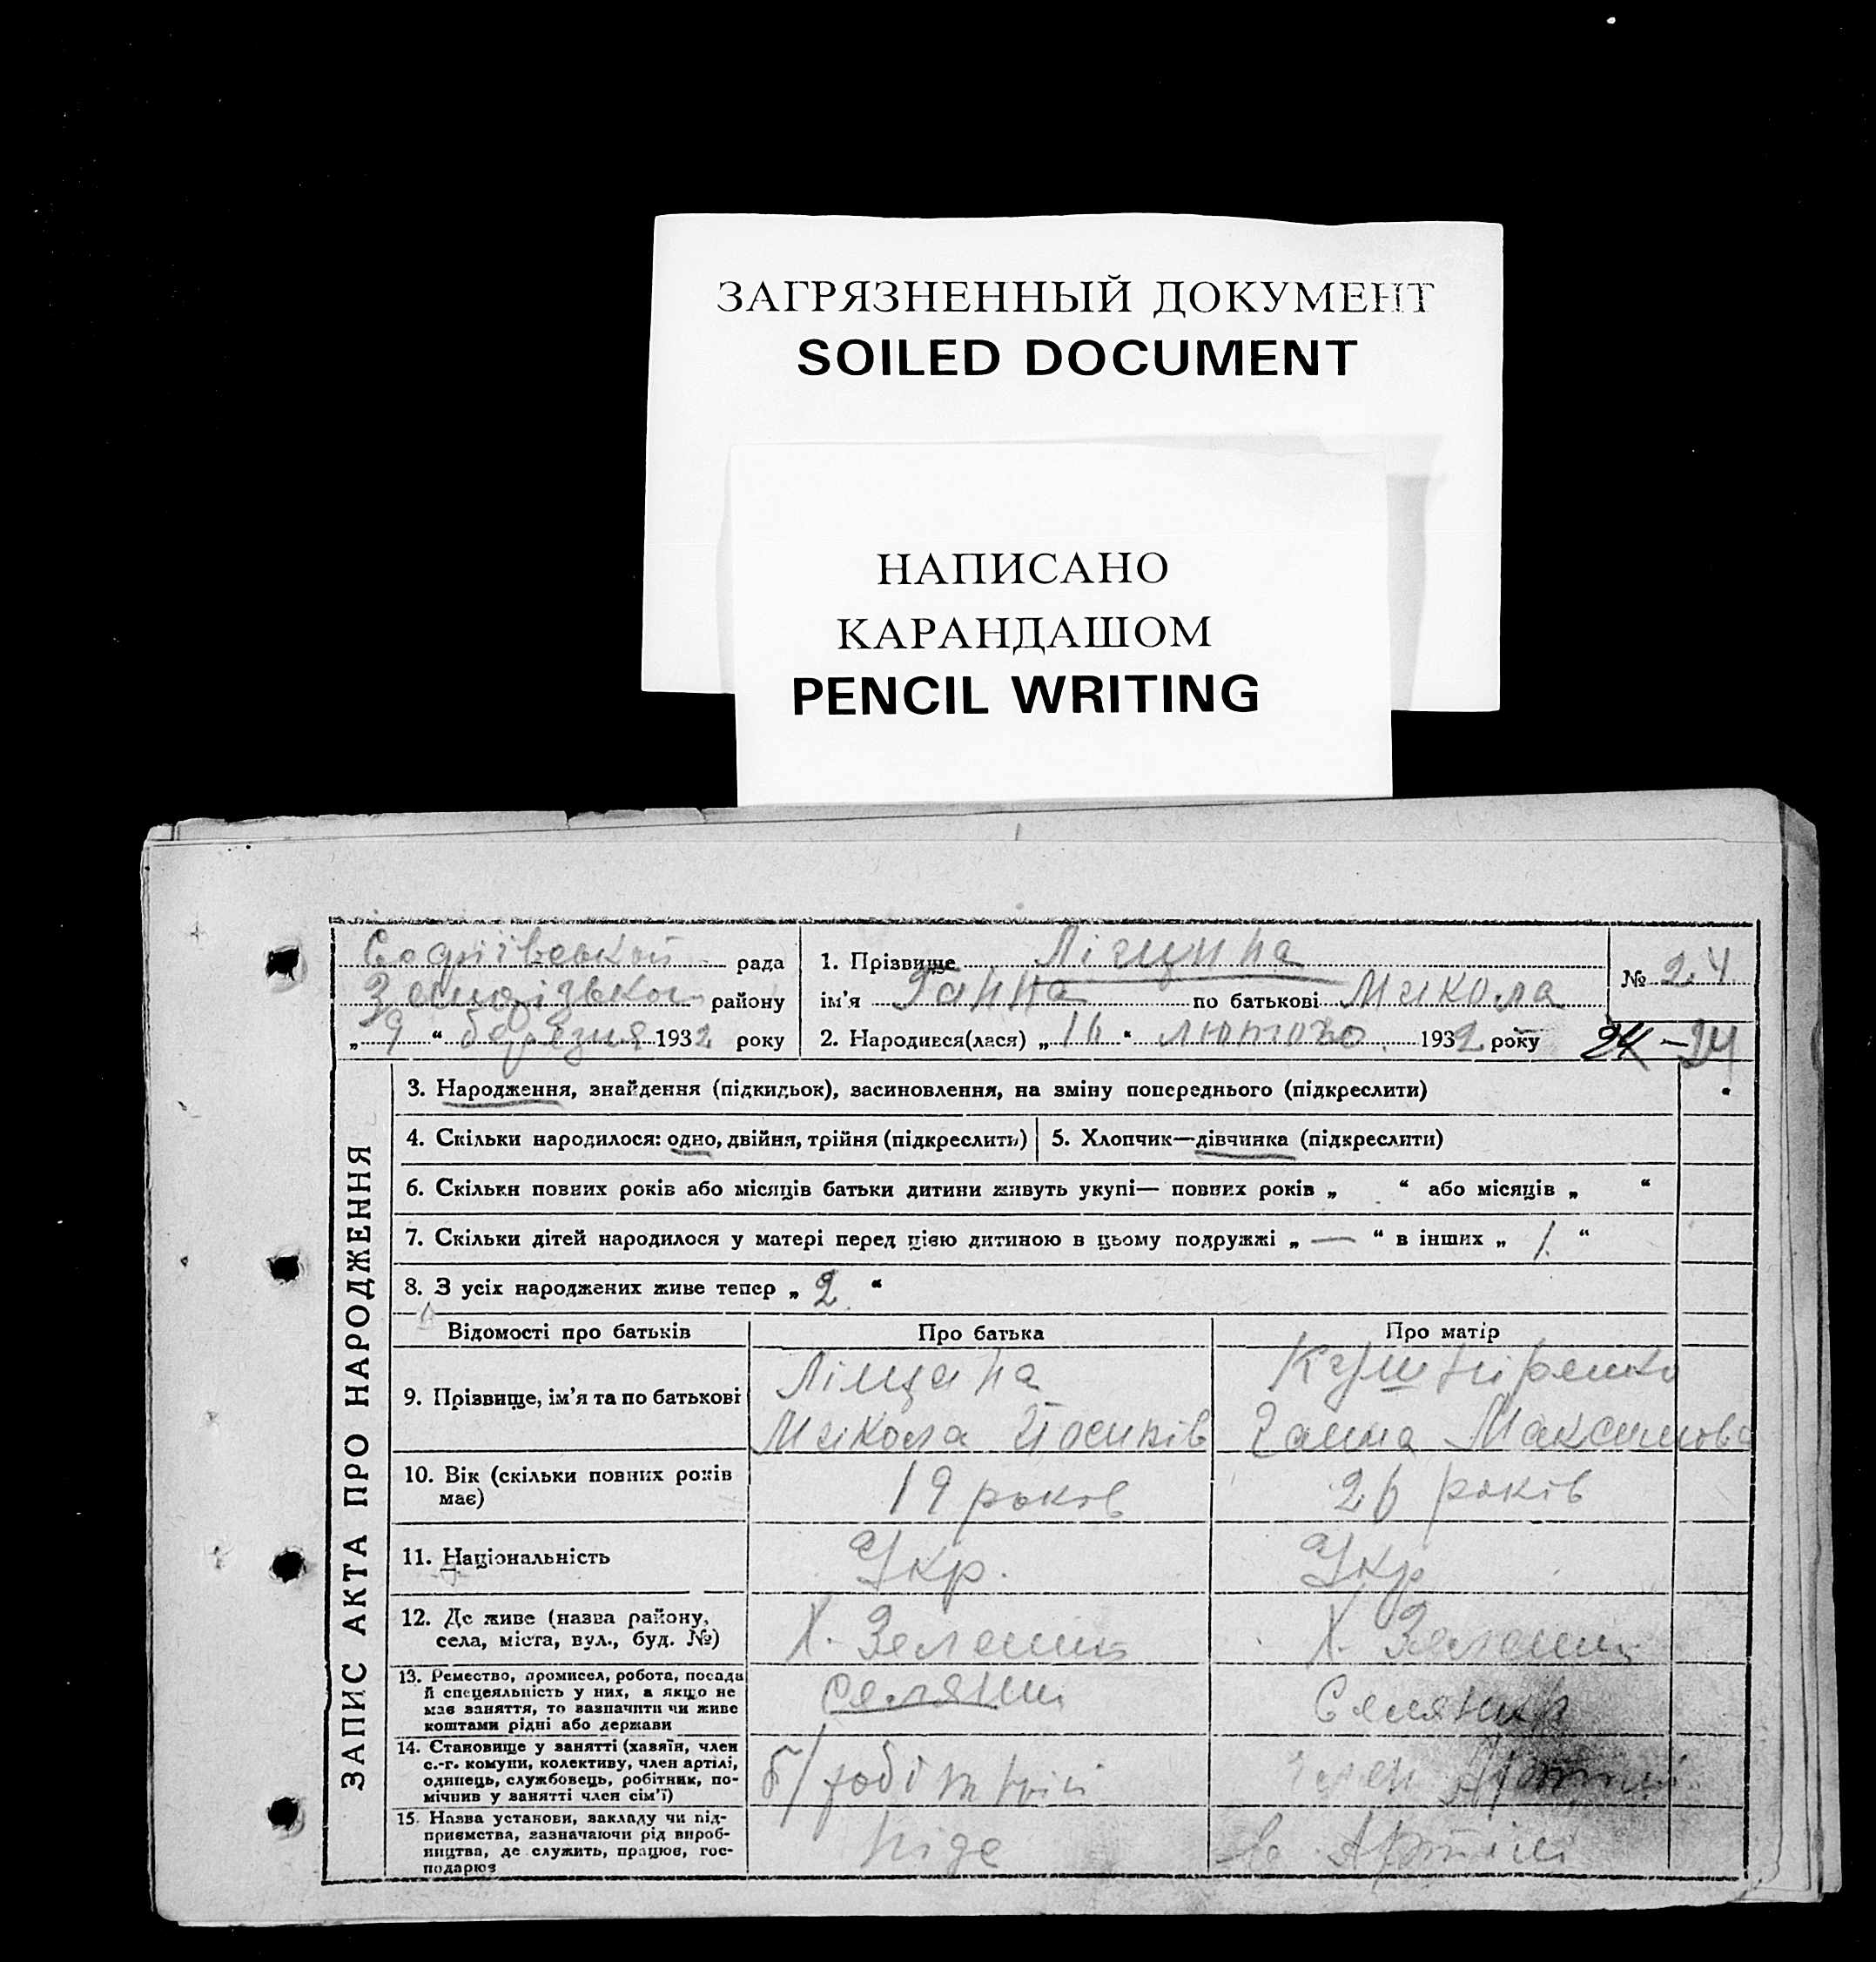 ЗАГРЯЗНЕННЫЙ ДОКУМЕНТ
SOILED DOCUMENT
НАПИСАНО
КАРАНДАШОМ
PENCIL WRITING
Софіївської рада
району
„ 9 “ березня 1932 року
1. Прізвище
ім'я Ганна по батькові Микола
2. Народився(лася) „ 16 “ лютого 1932 року
№ 24
24 – 24
ЗАПИС АКТА ПРО НАРОДЖЕННЯ
3. Народження, знайдення (підкидьок), засиновлення, на зміну попереднього (підкреслити)
4. Скільки народилося: одно, двійня, трійня (підкреслить)
5. Хлопчик—дівчинка (підкреслити)
6. Скільки повних років або місяців батьки дитини живуть укупі— повних років „ “ або місяців „ “
7. Скільки дітей народилося у матері перед цією дитиною в цьому подружжі „ — “ в інших „ 1. “
8. З усіх народжених живе тепер „ 2 “
Відомості про батьків
Про батька
Про матір
9. Прізвище, ім'я та по батькові
Микола Йосипів
Кушніренко
Ганна Максимова
10. Вік (скільки повних років
має)
19 років
26 років
11. Національність
Укр.
Укр
12. Де живе (назва району,
села, міста, вул., буд. №)
Х.
Х.
13. Ремество, промисел, робота, посада
й спецеяльність у них, а якщо не
має заняття, то зазначити чи живе
коштами рідні або держави
Селянин
Селянка
14. Становище у занятті (хазяїн, член
с.-г. комуни, колективу, член артілі,
одинець, службовець, робітник, по-
мічнив у занятті член сім'ї)
член Артілі
15. Назва установи, закладу чи під-
приємства, зазначаючи рід вироб-
ництва, де служить, працює, гос-
подарює
ніде
в Артілі